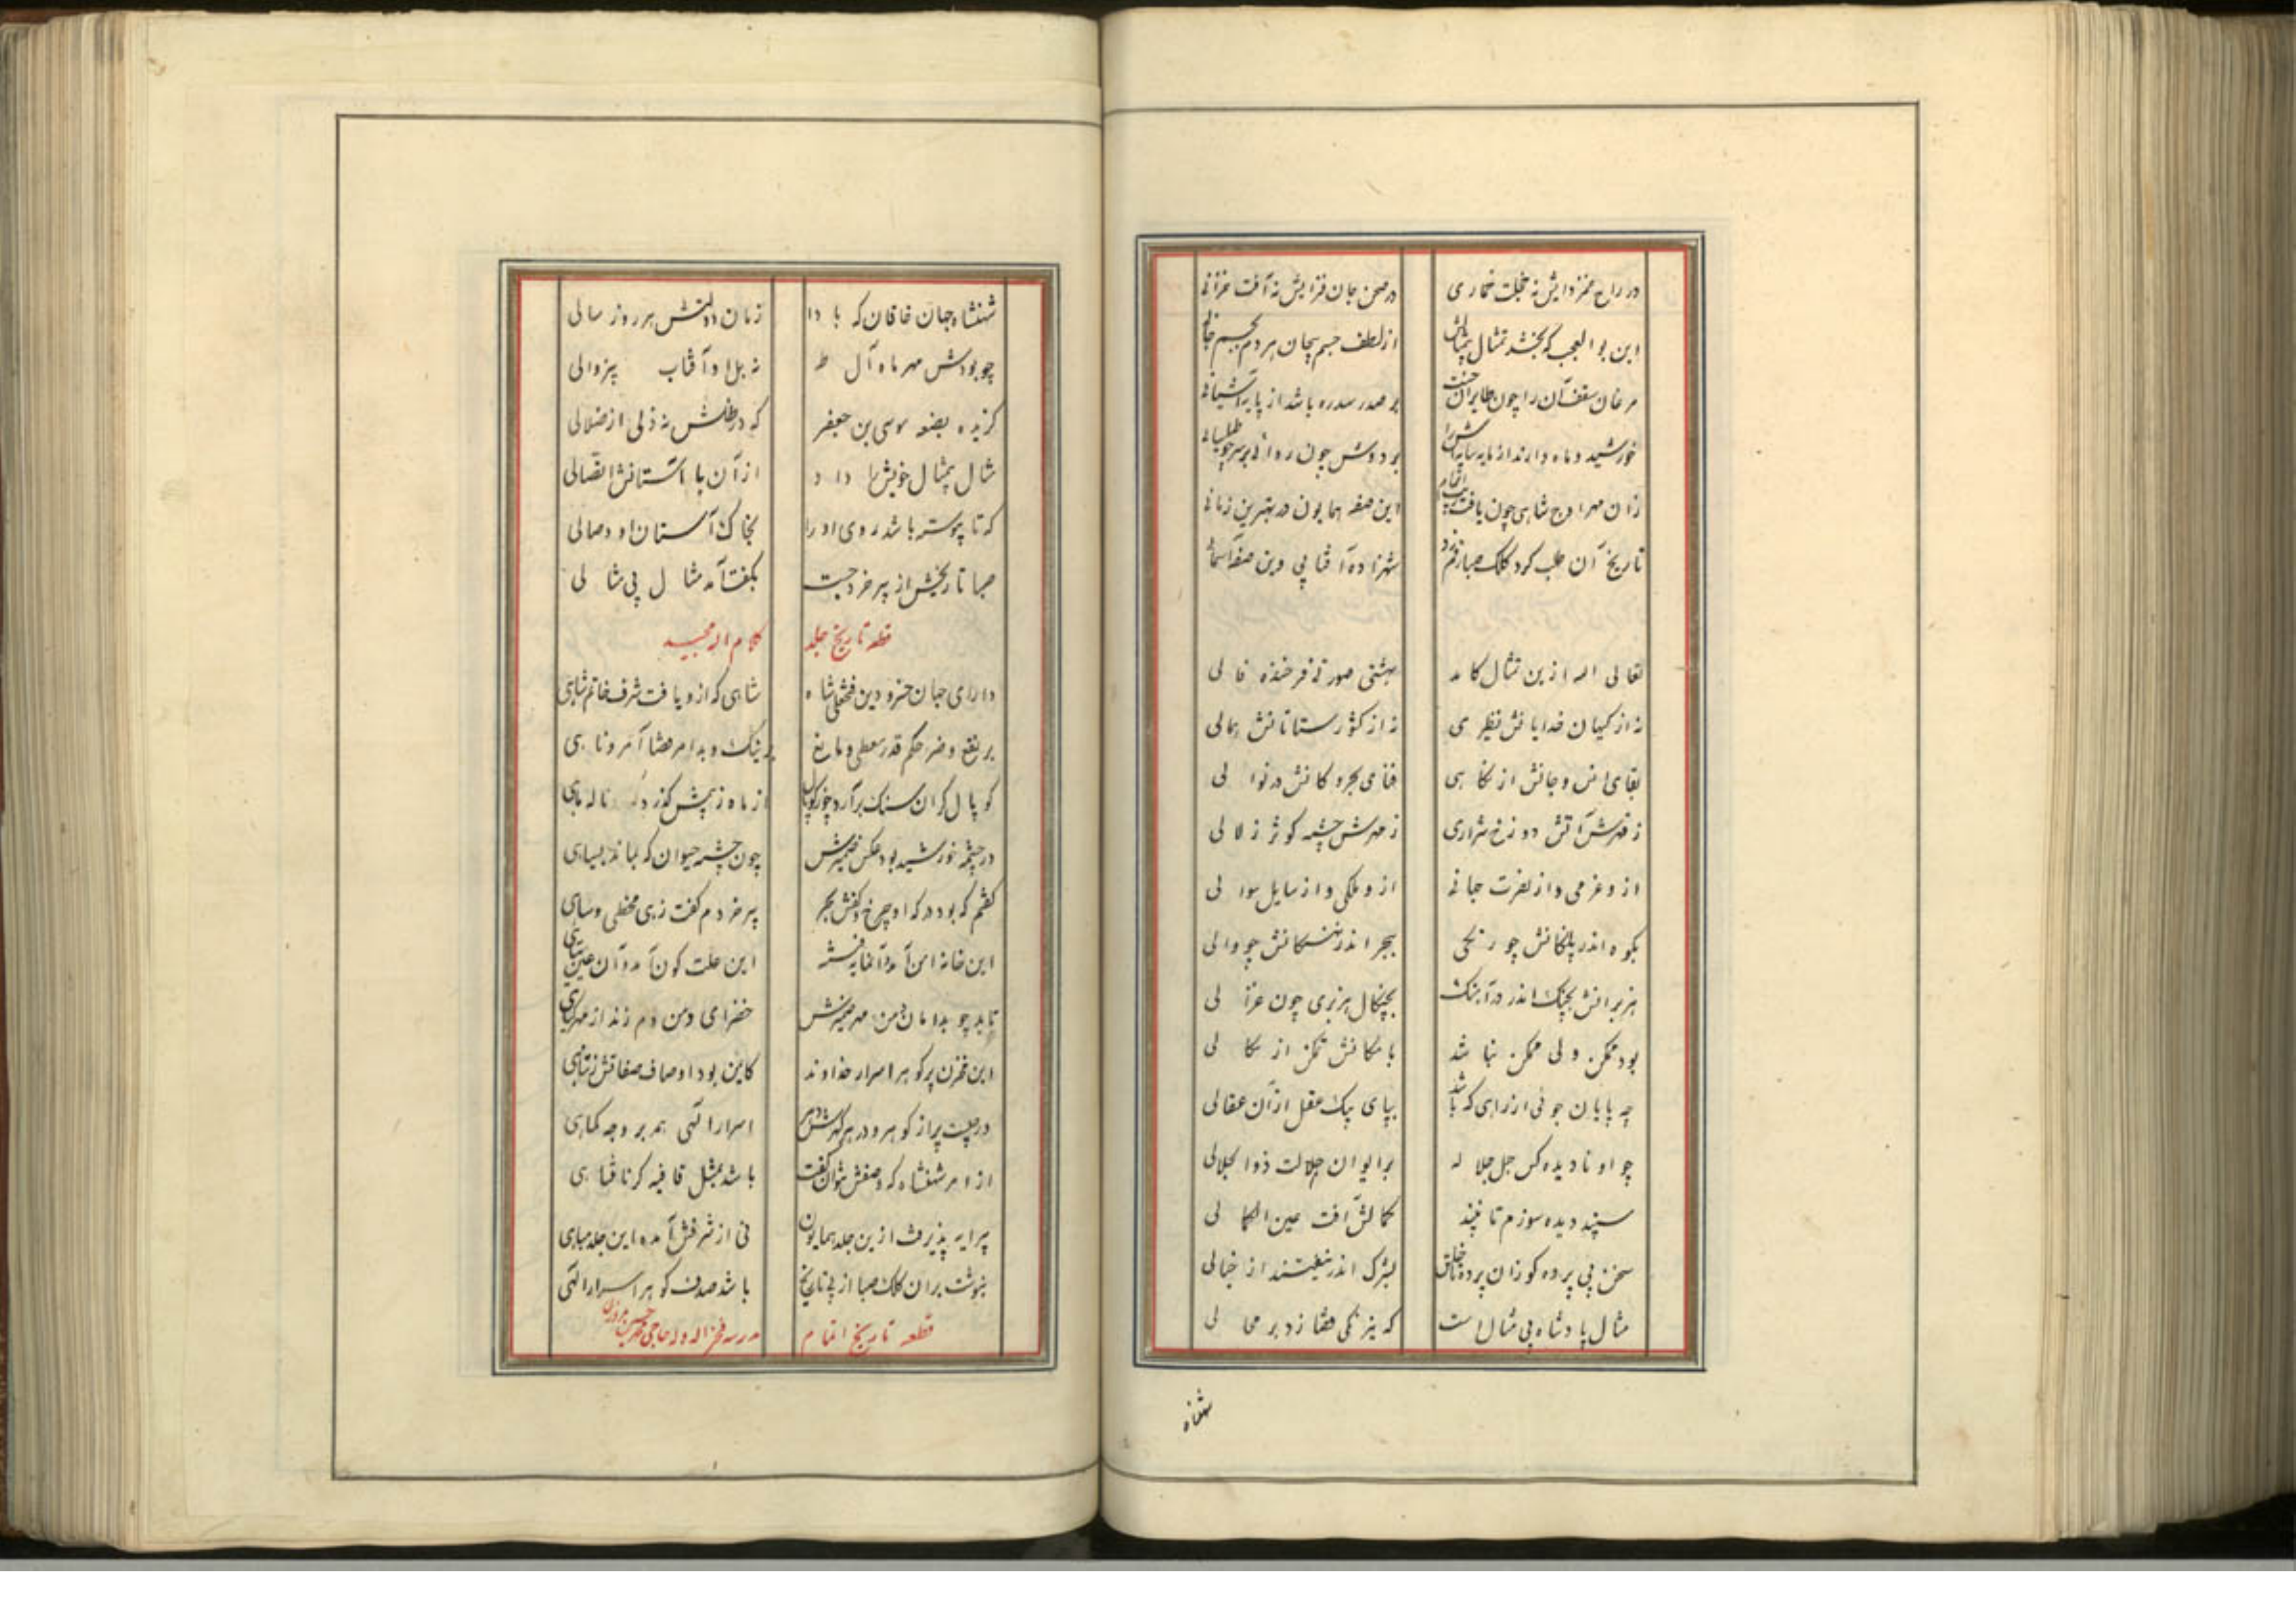 در راح غمزدایش نه خجلت خماری در صحن جان فزایش نه آفت خزانی
این بوالعجب که بخشد تمثال بیمثالش از لطف جسم بیجان هر دم بجسم جانی
مرغان سقف آن را چون طایران جنت بر صدر سدره باشد از پایه آشیانی
خورشید و ماه دارند از مایه سایه اش را بر دوش چون بر سر چو طیلسانی
زان مهر اوج شاهی چون یافت اتمام این صفه همایون در بهترین زمانی
تاریخ آن طلب کرد کلک صبا رقم زد شهزاده آفتابی وین صفه آسمانی
تعالی الله ازین تمثال کامد بهشتی صورتی فرخنده فالی
نه از کیهان خدایانش نظیری نه از کشورستانانش همالی
بقای انس و جانش از نگاهی فنای بحر و کانش در نوالی
ز قهرش آتش دوزخ شراری ز مهرش چشمه کوثر زلالی
ازو عزمی و از نصرت جهانی ازو ملکی و از سایل سوالی
بکوه اندر پلنگانش چو رنگی ببحر اندر نهنگانش چو والی
هزبرانش بچنگ اندر در آهنگ بچنگال هزبری چون غزالی
بود ممکن ولی ممکن نباشد با مکانش تمکن از مکالی
چه پایان جوئی از راهی که باشد بپای پیک عقل از آن عقالی
چو او نادیده کس جل جلاله بر ایوان جلالت ذوالجلالی
سپند دیده سوزم تا نبیند کمالش آفت عین الکمالی
سخن بی پرده کو زان پرده خلق بشرک اندر نیفتند از خیالی
مثال پادشاه بی مثال است که نیرنگی قضا زد بر محالی
شهنشاه
شهنشاه جهان خاقان که بادا زمان دولتش هر روز سالی
چو بودش مهر ماه آل طه نه بل او آفتاب بیزوالی
گزیده بضعه موسی بن جعفر که در ظلش نه ذلی از ضلالی
مثال بیمثال خویش را داد از آن با آستانش اتصالی
که تا پیوسته باشد روی او را بخاک آستان او وصالی
صبا تاریخش از پیر خرد جست بگفت آمد مثال بی مثالی
قطعه تاریخ جلد کلام الله مجید
دارای جهان خسرو دین فتحعلی شاه شاهی که ازو یافت شرف خاتم شاهی
بر نفع و ضر حکم قدر معطی و مانع بر نیک و بد امر قضا آمر و ناهی
کوپال گران سنگ برآرد چو ز کوپال از ماه ز پیش گذرد تا له ماهی
در چشمه خورشید بود عکس ضمیرش چون چشمه حیوان که بماند بسیاهی
گفتم که بود درگه او چرخ و کفش بحر پیر خردم گفت زهی مخطی و ساهی
این خانه امن آمد و آن این علت کون آمد و آن عین
تابد چو بدامان دمن مهر ضمیرش خضرای دمن دم زند از مهر گیاهی
این مخزن پر گوهر اسرار خداوند کاین بود اوصاف صفاتش ز تباهی
درجیست پر از گوهر و در هر گهرش در اسرار الهی همه بر وجه کماهی
از امر شهنشاه که وصفش نتوان گفت باشد بمثل قافیه گر نامتناهی
پیرایه پذیرفت ازین جلد همایون نی از شرفش آمده این جلد مباهی
بنوشت بر آن کلک صبا از پی تاریخ باشد صدف گوهر اسرار الهی
قطعه تاریخ اتمام مدرسه فخرالدوله حاجی محمد حسین